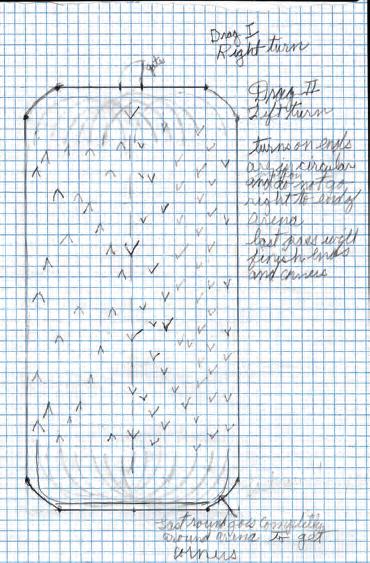 Drag I
Right turn
gate
Drag II
Left turn
turns on ends
are semi circular
and do not go
right to end of
arena
last pass will
finish ends
and corners
Last round goes completely
around arena to get
corners